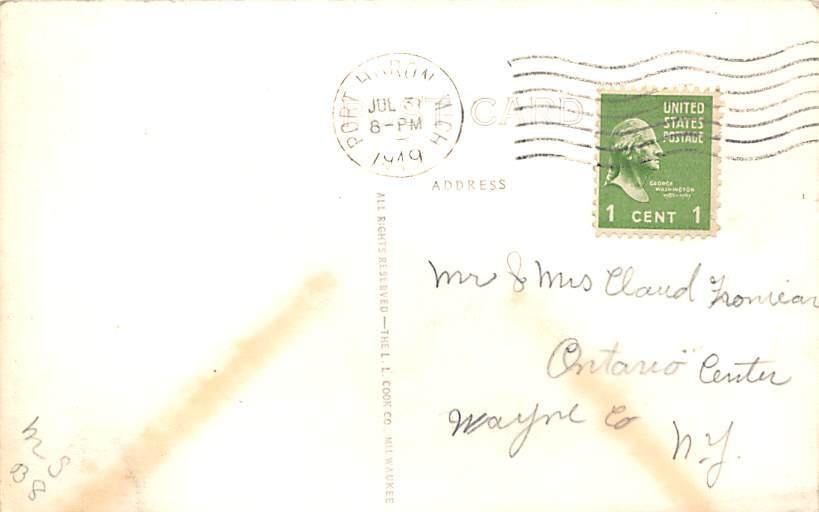 PORT HURON MICH
JUL 31
8-PM
1949
POST CARD
UNITED
STATES
POSTAGE
GEORGE
WASHINGTON
1 CENT 1
ADDRESS
ALL RIGHTS RESERVED — THE L. L. COOK CO. MILWAUKEE
Mr & Mrs Claud
Ontario Center
Wayne Co
N.Y.
M S
B8